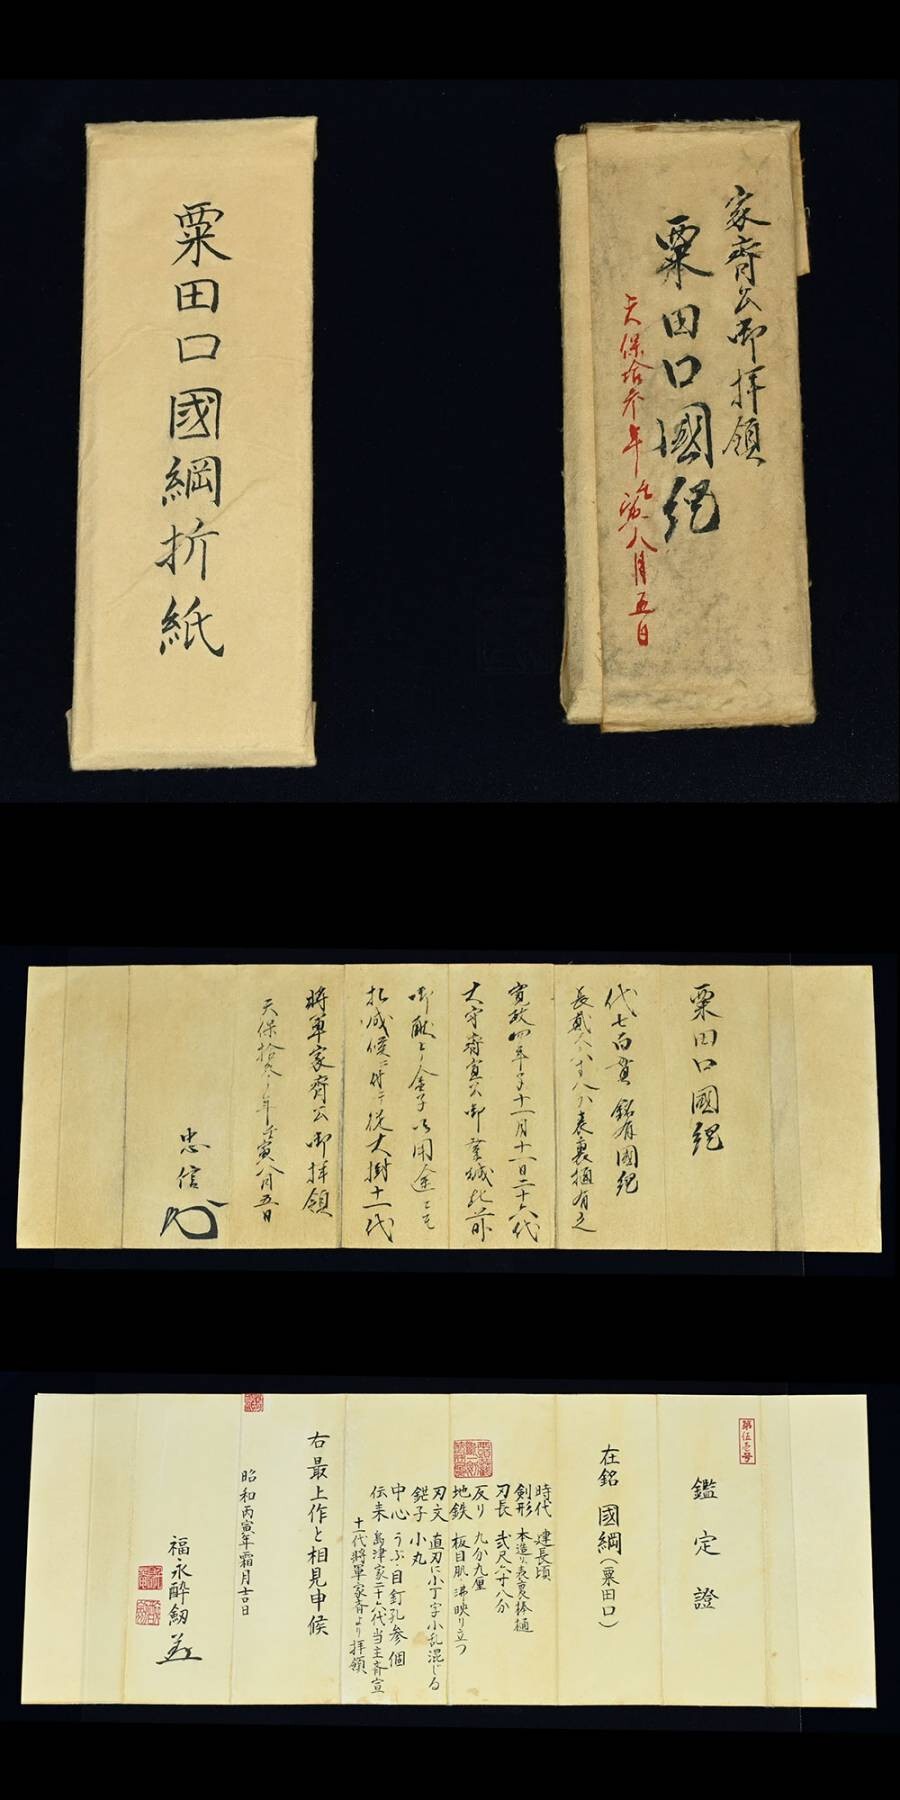 粟田口國綱折紙
家斉公御拝領
粟田口國綱
天保拾参年壬寅八月五日
粟田口國綱
代七百貫 銘有國綱
長貳尺六寸八分表裏樋有之
寛政四年子十一月十一日二十六代
太守斉宣公御登城此前
御献上金子御用途とも
相成候ニ付テ従大樹十一代
将軍家斉公御拝領
天保拾参年壬寅八月五日
忠信
第伍壱号
鑑定證
在銘 國綱(粟田口)
時代 建長頃
剣形 本造り表裏棒樋
刃長 弐尺六寸八分
反り 九分九厘
地鉄 板目肌沸映り立つ
刃文 直刃に小丁字小乱混じる
鋩子 小丸
中心 うぶ・目釘孔参個
伝来 島津家二十六代当主斉宣
十一代将軍家斉より拝領
右最上作と相見申候
昭和丙寅年霜月吉日
福永酔剣